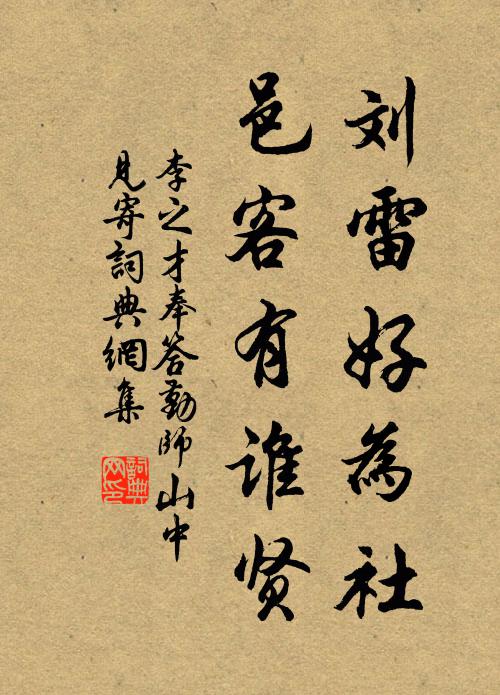 刘雷好為社
邑客有谁贤
李之才奉答勤师山中
見寄詞典網集
詞典网印